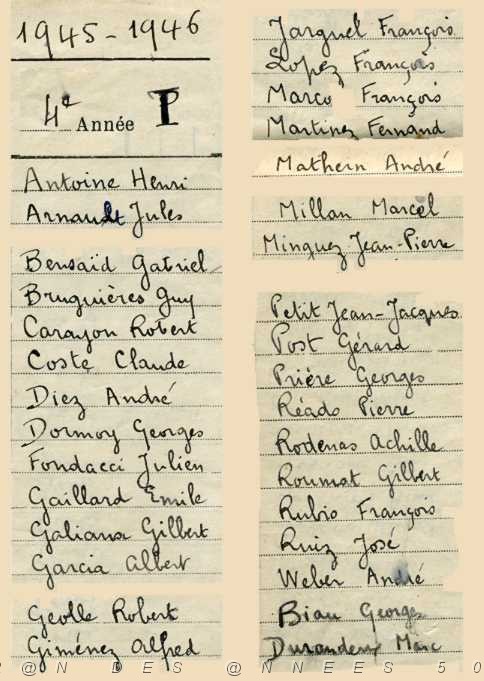 1945-1946
4e Année T
Antoine Henri
Arnaudt Jules
Bensaïd Gabriel
Bruguières Guy
Carayon Robert
Coste Claude
Diez André
Dormoy Georges
Fondacci Julien
Gaillard Emile
Galiana Gilbert
Garcia Albert
Geolle Robert
Giménez Alfred
Jarquel François
Lopez François
Marco François
Martinez Fernand
Mathern André
Millan Marcel
Minguez Jean-Pierre
Petit Jean-Jacques
Post Gérard
Prière Georges
Réado Pierre
Rodenas Achille
Roumat Gilbert
Rubio François
Ruiz José
Weber André
Biau Georges
Durandeux Marc
@N DES @NNEES 50